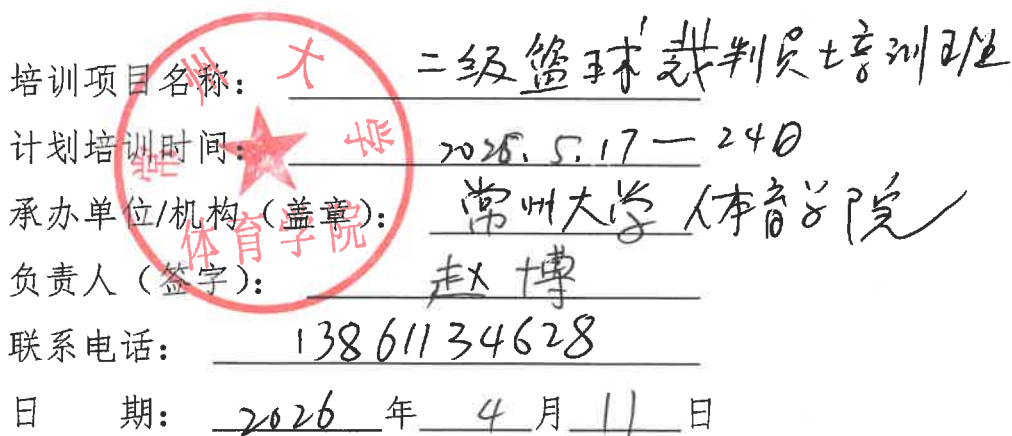 培训项目名称：二级篮球裁判员培训班
计划培训时间：2026.5.17—24日
承办单位/机构（盖章）：常州大学体育学院
负责人（签字）：赵博
联系电话：13861134628
日 期：2026年4月11日
常州大学
体育学院